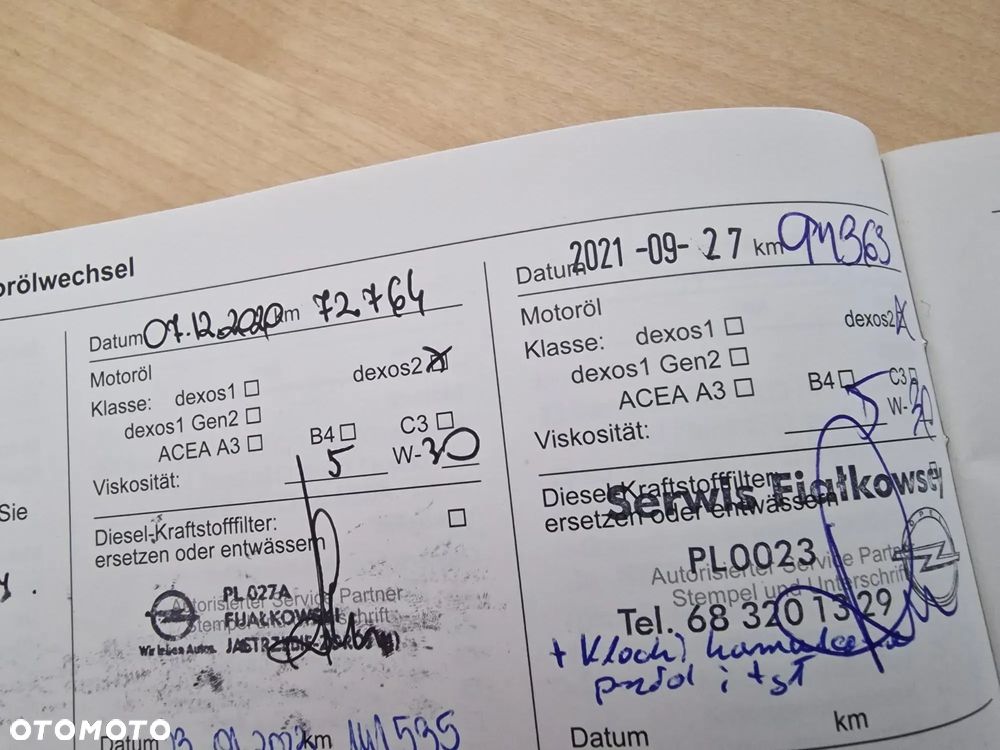 orölwechsel
Sie
Datum 07.12.2020 km 72764
Motoröl
Klasse: dexos1 ☐ dexos2 ☒
dexos1 Gen2 ☐
ACEA A3 ☐ B4 ☐ C3 ☐
Viskosität: 5 W-30
Diesel-Kraftstofffilter: ☐
ersetzen oder entwässern
PL 027A
Autorisierter Service Partner
FIJAŁKOWSKI
Stempel und Unterschrift
Wir leben Autos.
Datum 13 01 2022 km 111535
Datum 2021-09-27 km 94363
Motoröl
Klasse: dexos1 ☐ dexos2 ☒
dexos1 Gen2 ☐
ACEA A3 ☐ B4 ☐ C3 ☐
Viskosität: 5 W-30
Diesel-Kraftstofffilter:
ersetzen oder entwässern
Serwis Fijałkowski
PL0023
Autorisierter Service Partner
Stempel und Unterschrift
Tel. 68 320 13 29
+ klocki hamulcowe
przód i tył
Datum km
OTOMOTO